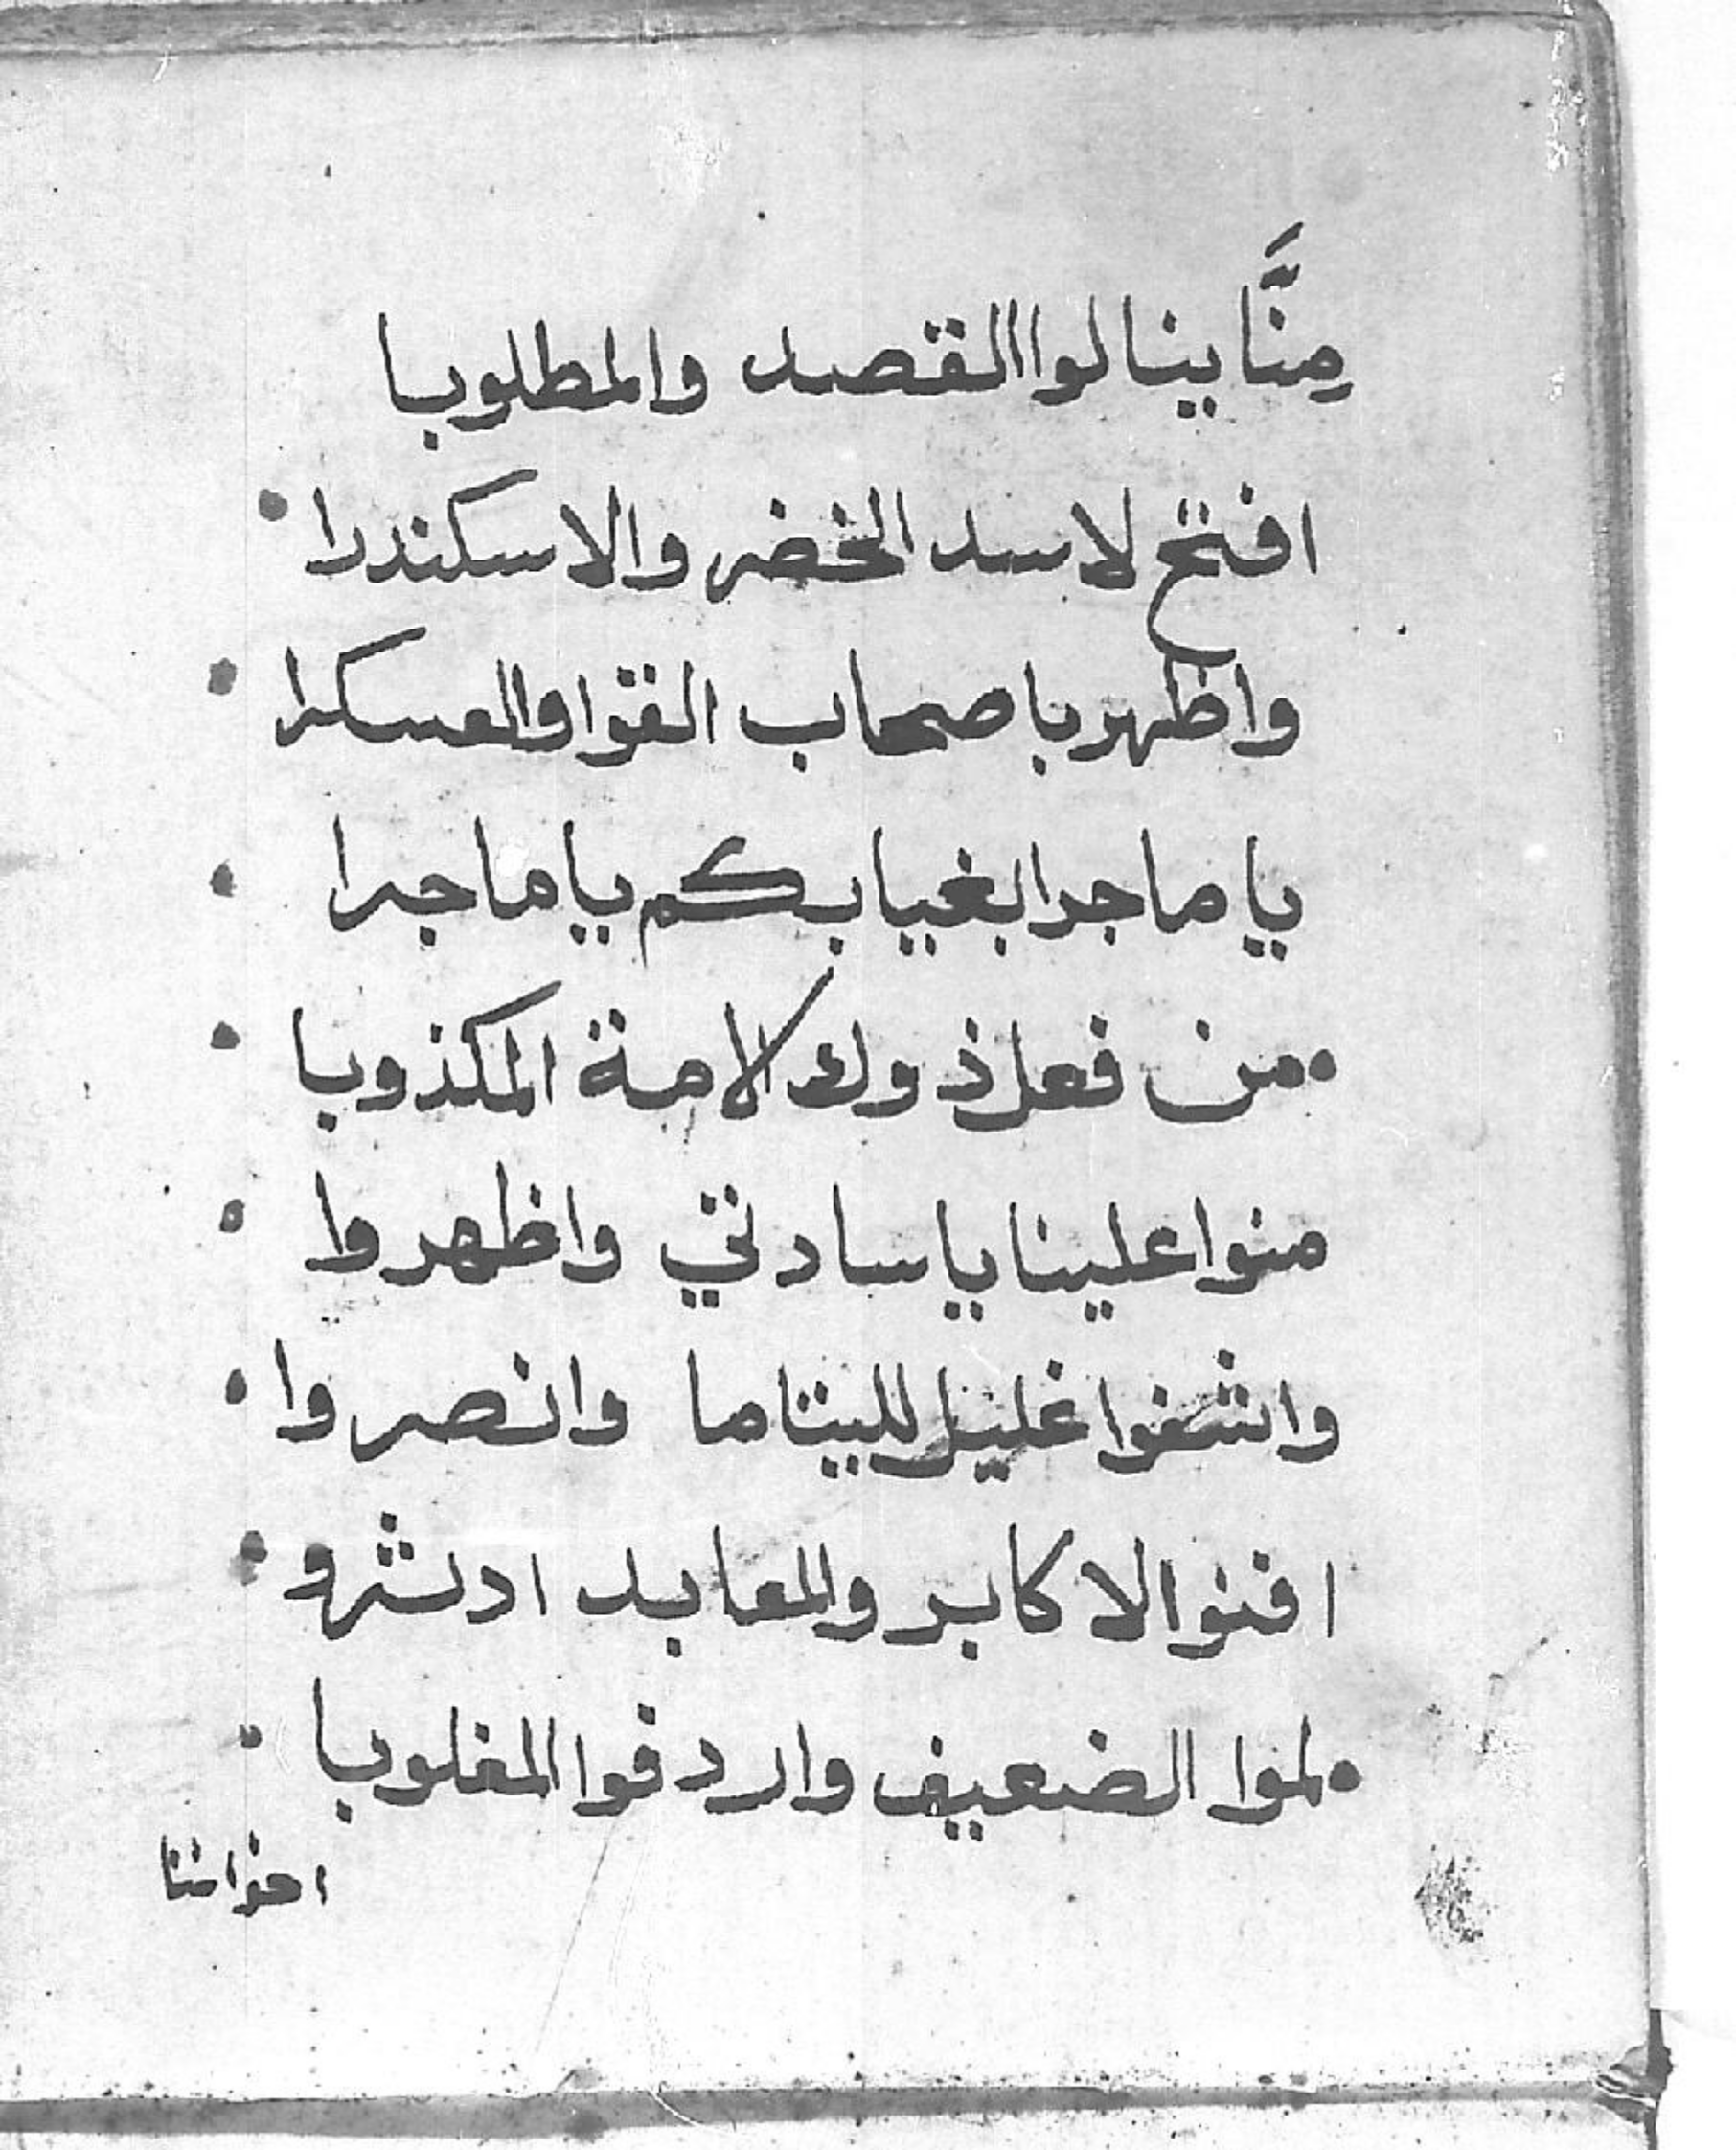 مِنَّا ينالوا القصد والمطلوبا
افتح لاسد الخضر والاسكندرا
واظهر باصحاب القوا والعسكرا
يا ماجرا بغيابكم يا ماجرا
من فعل ذوك الامة المكذوبا
منوا علينا يا سادتي واظهروا
واشفوا غليل لليتاما وانصروا
افنوا الاكابر والمعابد ادشرو
لموا الضعيف واردفوا المغلوبا